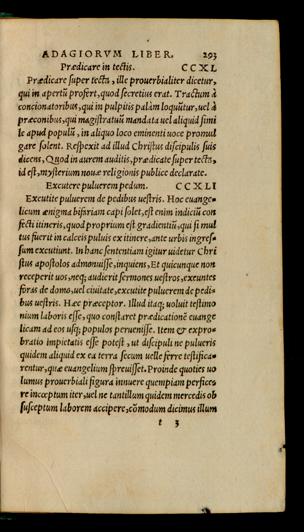 ADAGIORVM LIBER. 293
Prædicare in tectis. CCXL
Prædicare super tecta, ille prouerbialiter dicetur,
qui in apertū profert, quod secretius erat. Tractum à
concionatoribus, qui in pulpitis palàm loquūtur, uel à
præconibus, qui magistratuū mandata uel aliquid simi
le apud populū, in aliquo loco eminenti uoce promul
gare solent. Respexit ad illud Christus discipulis suis
dicens, Quod in aurem auditis, prædicate super tecta,
id est, mysterium nouæ religionis publice declarate.
Excutere puluerem pedum. CCXLI
Excutite puluerem de pedibus uestris. Hoc euange
licum ænigma bifariam capi solet, est enim indiciū con
fecti itineris, quod proprium est gradientiū, qui si mul
tus fuerit in calceis puluis ex itinere, ante urbis ingres
sum excutiunt. In hanc sententiam igitur uidetur Chri
stus apostolos admonuisse, inquiens, Et quicunque non
receperit uos, neq; audierit sermones uestros, exeuntes
foras de domo, uel ciuitate, excutite puluerem de pedi
bus uestris. Hæc præceptor. Illud itaq; uoluit testimo
nium laboris esse, quo constaret prædicationē euange
licam ad eos usq; populos peruenisse. Item & expro-
bratio impietatis esse potest, ut discipuli ne pulueris
quidem aliquid ex ea terra secum uelle ferre testifica-
rentur, quæ euangelium spreuisset. Proinde quoties uo
lumus prouerbiali figura innuere quempiam perfices
re inceptum iter, uel ne tantillum quidem mercedis ob
susceptum laborem accipere, cōmodum dicimus illum
t 3